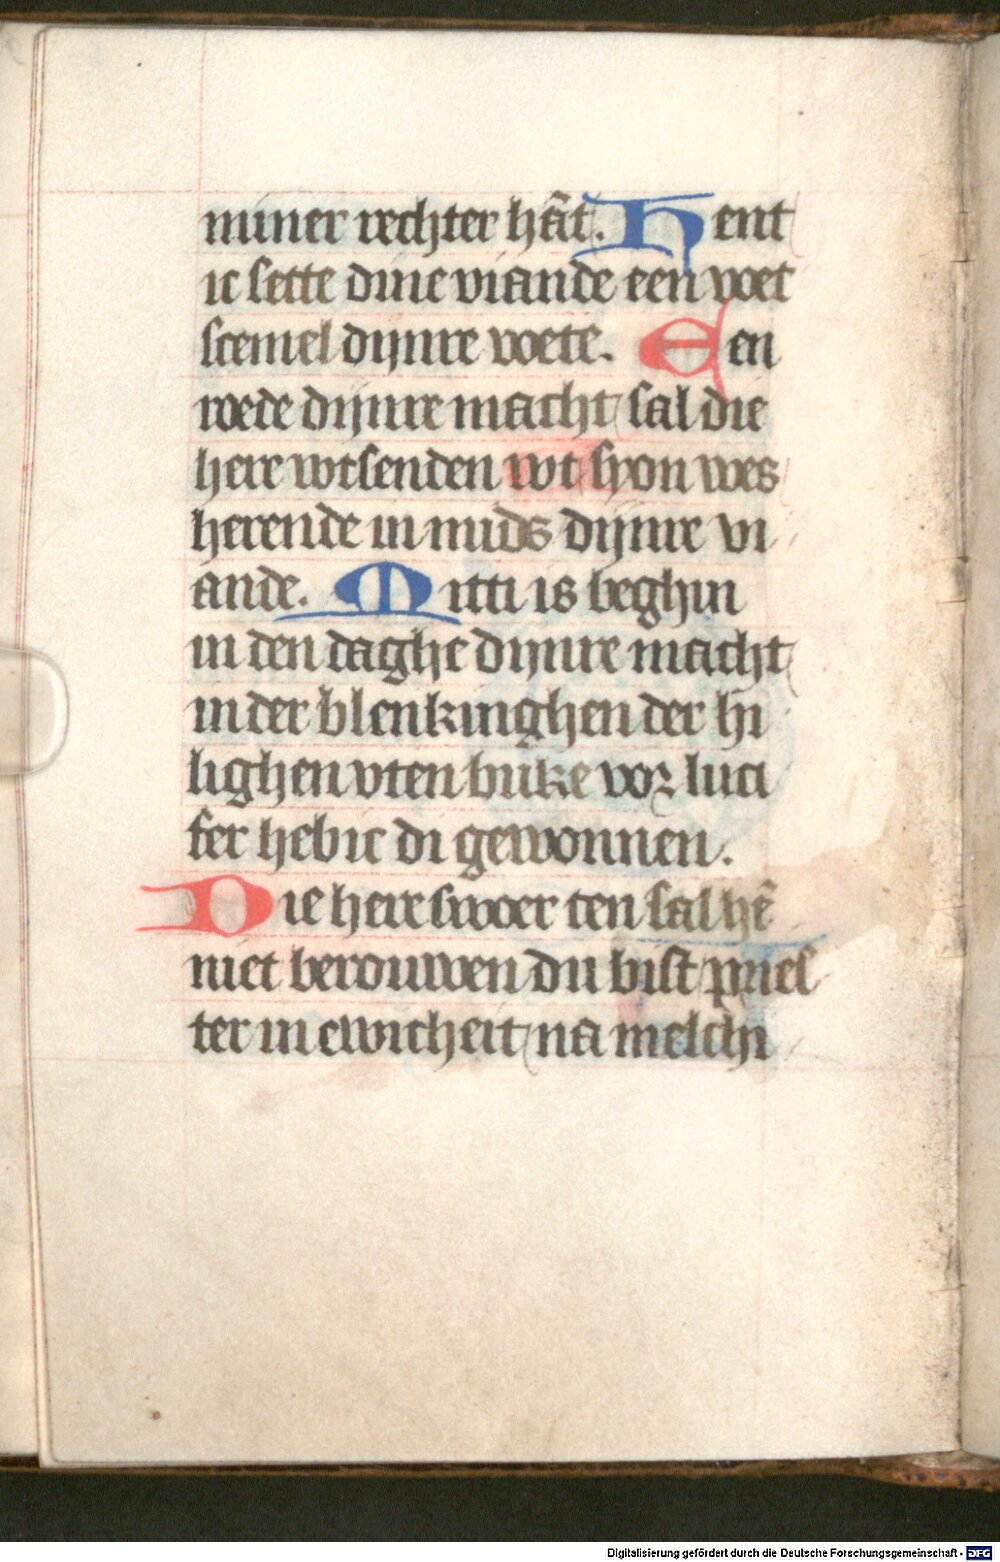 miner rechter hāt. Hent
ic sette dine viande een voet
scemel dijnre voete. Een
roede dijnre macht sal die
here wtsenden wt syon wes
herende in mids dijnre vi
ande. Mitti is beghin
in den daghe dijnre macht
in der blenkinghen der hi
lighen vten buke vor luci
fer hebic di gewonnen.
Die here swoer ten sal hē
niet berouwen du bist pries
ter in ewicheit na melchi
Digitalisierung gefördert durch die Deutsche Forschungsgemeinschaft - DFG